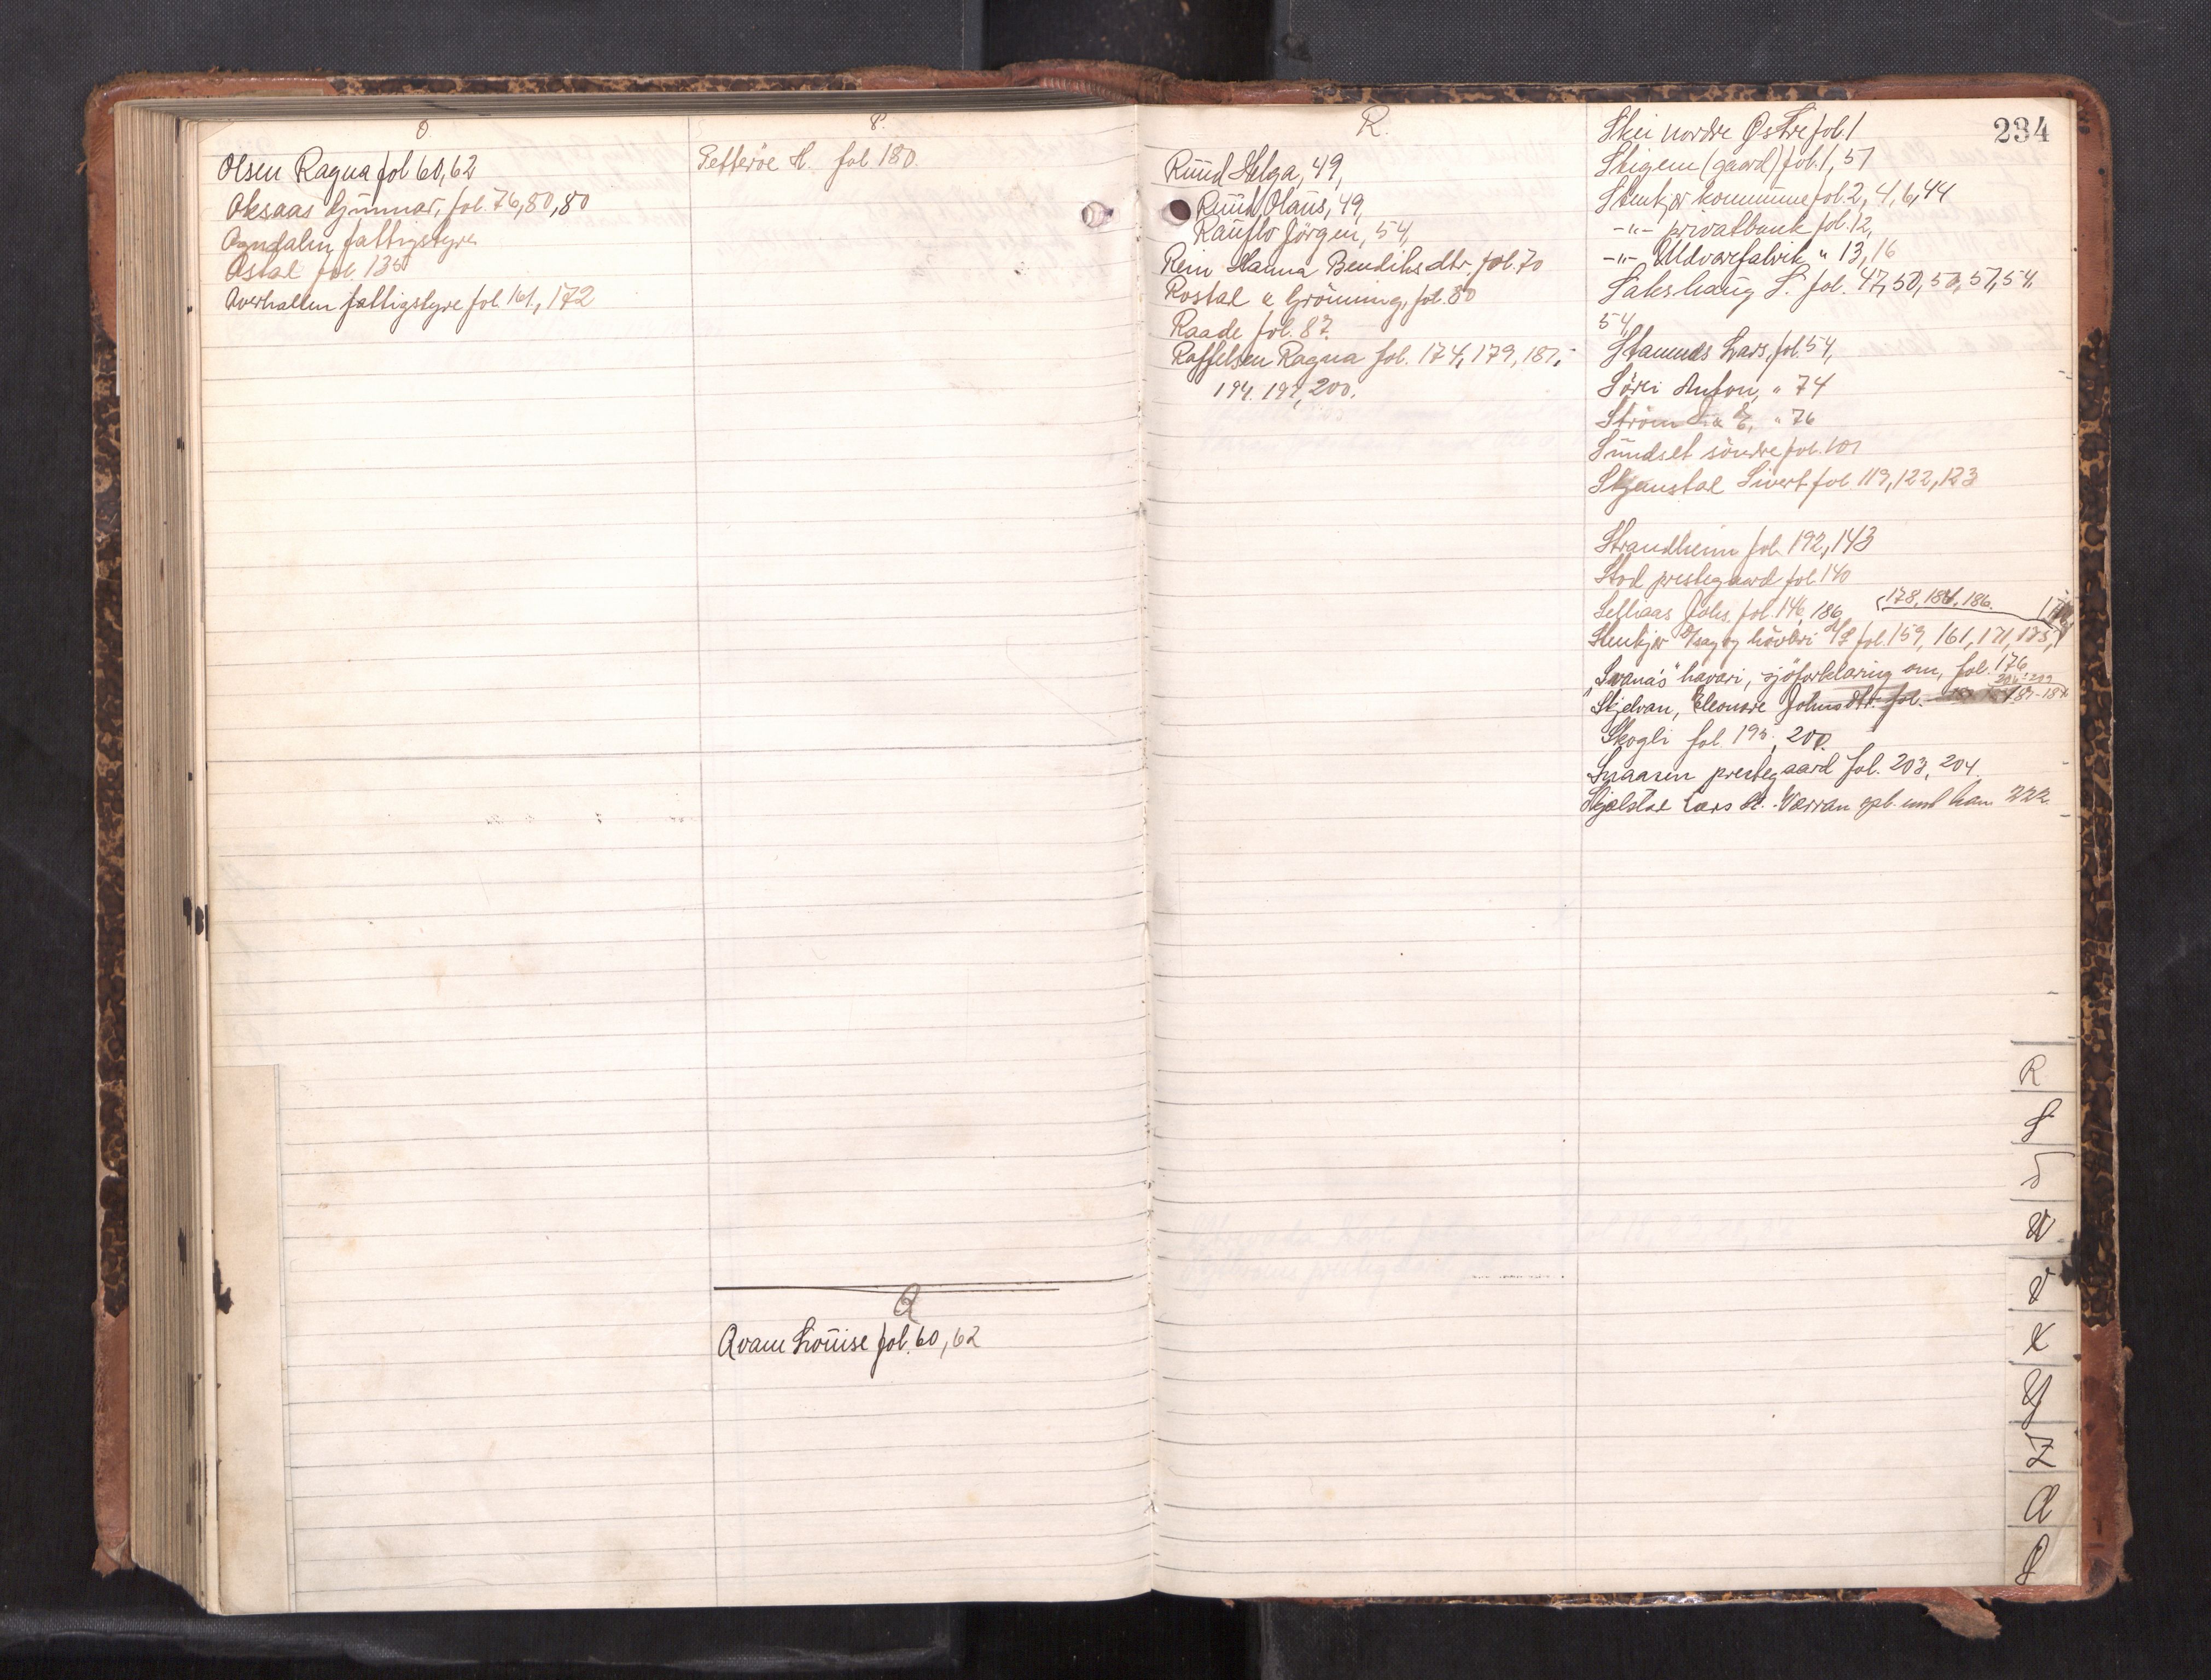 O.
Olsen Ragna fol 60,62
Oksaas Gunnar, fol. 76,80,80
Ogndalen fattigstyre
Ostal fol 135
Overhallen fattigstyre fol. 161, 172
P.
Petteröe H. fol. 180.
Q
Qvam Louise fol. 60, 62
R.
Ruud Helga, 49,
Ruud Olaus, 49,
Rauflo Jörgen, 54,
Rein Hanna Bendiksdtr. fol. 70
Rostal & Grönning, fol. 80
Raade fol. 87.
Roffelsen Ragna fol. 174, 179, 181,
194. 197, 200.
234
Skei nordre Östre fol. 1
Skigem (gaard) fol. 1, 51
Stenkjær kommune fol. 2, 4, 6, 44
-"- privatbank fol. 12,
-"- Uldvarefabrik " 13, 16
Sakshaug S. fol. 47, 50, 50, 51, 54,
54,
Stamnes Lars, fol. 54,
Sörei Anton, " 74
Ström " 76
Sundset söndre fol. 101
Stjernstal Sivert fol. 119, 122, 123
Strandheim fol. 192, 143
Stod prestegaard fol. 140
Selliaas Johs. fol. 146, 186
178, 184, 186.
Stenkjær sag og hövleri A/S fol. 159, 161, 171, 175,
"Svanas" havari, sjöforklaring om, fol. 176
Skjelvan, Eleonore Johnsdtr. fol. 183-184
Skogli fol. 195, 200.
Snaasen prestegaard fol. 203, 204.
Stjølstal Lars H. Værran 222.
R
S
T
U
V
X
Y
Z
Æ
Ø